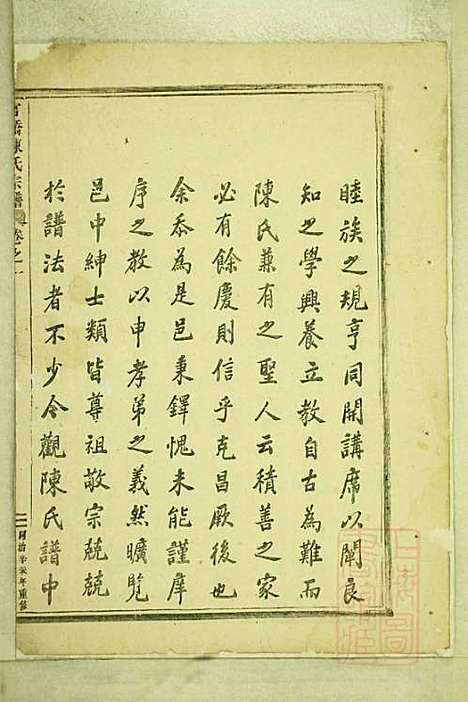 睦族之規亨同開講席以闡良
知之學興養立教自古為難而
陳氏兼有之聖人云積善之家
必有餘慶則信乎克昌厥後也
余忝為是邑秉鐸愧未能謹庠
序之教以申孝弟之義然曠覽
邑中紳士類皆尊祖敬宗兢兢
於譜法者不少今觀陳氏譜中
橋陳氏宗譜
卷之一
同治辛未年重修